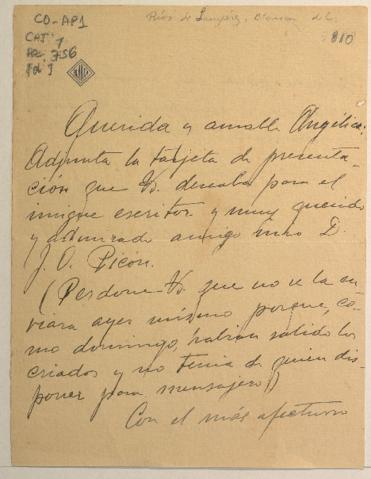 CO-AP1
CAJ. 7
756
Ríos de Lampérez, Blanca de l.
810
Querida y amable Angélica:
Adjunta la tarjeta de presenta-
ción que V. deseaba para el
insigne escritor y muy querido
y admirado amigo mio D.
J. O. Picón.
(Perdone V. que no se la en-
viara ayer mismo porque, co-
mo domingo, habían salido los
criados y no tenia de quien dis-
poner para mensajero.)
Con el más afectuoso